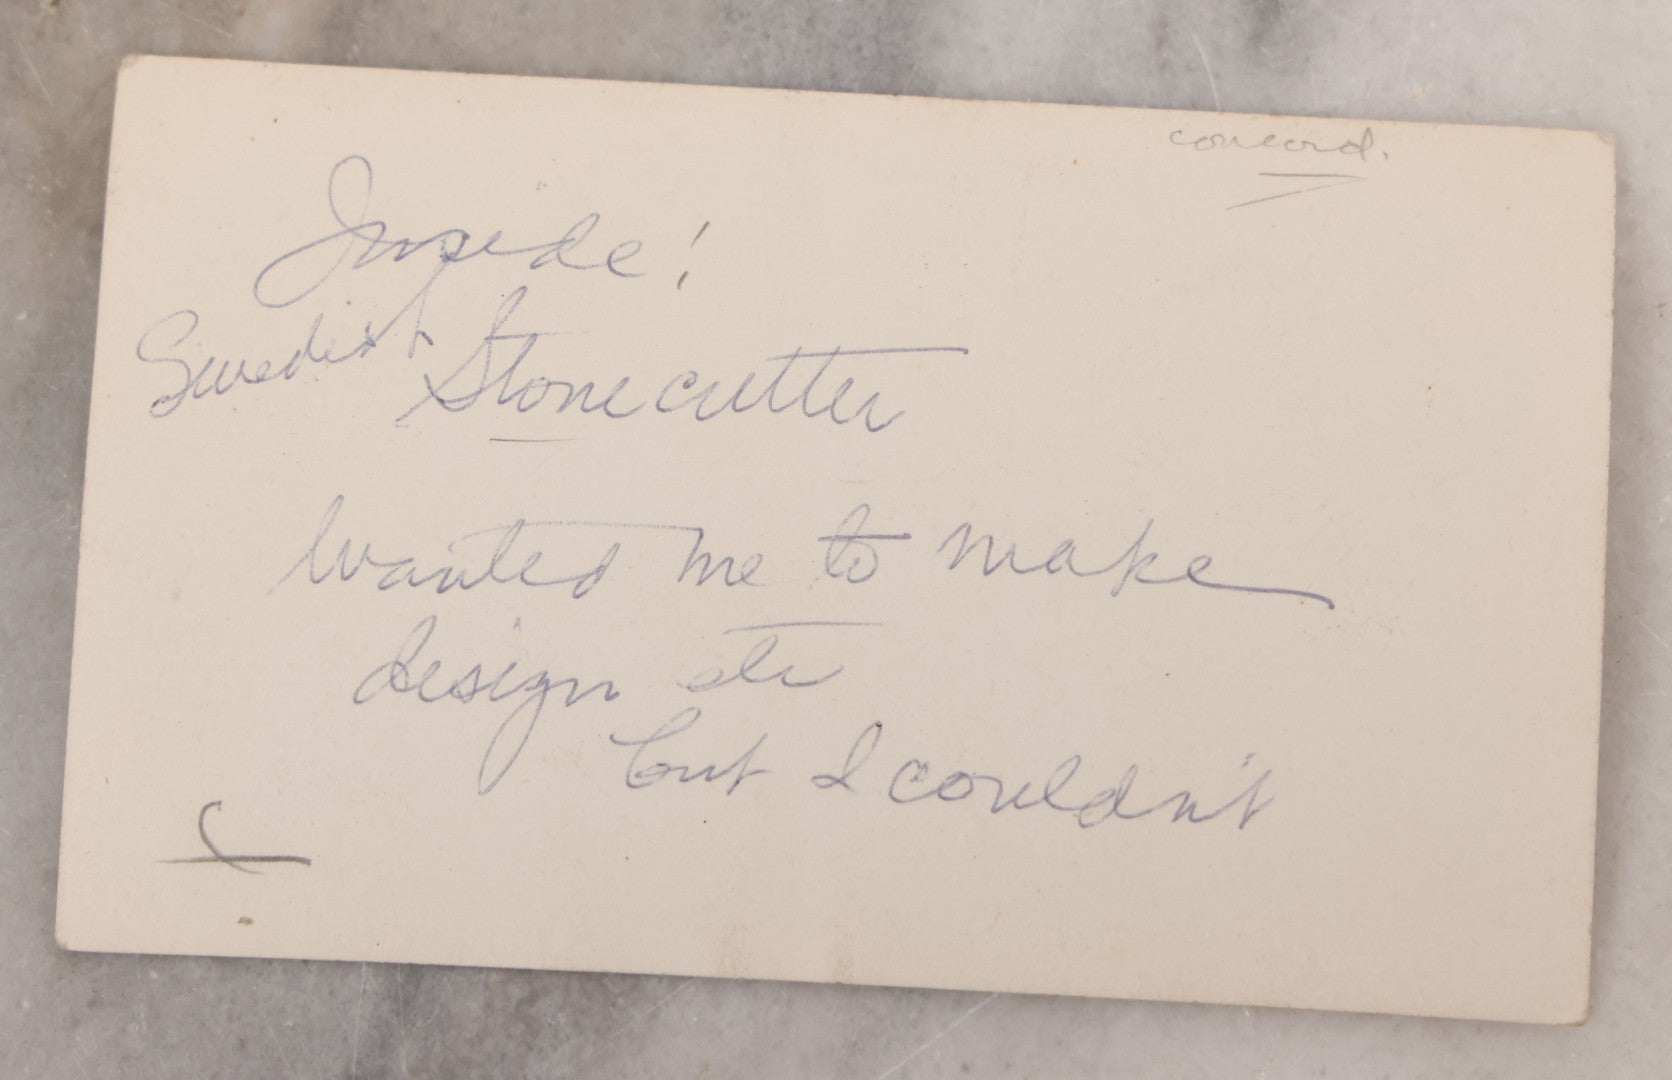 concord.
Inside!
Swedish Stonecutter
wanted me to make
design etc
but I couldn't